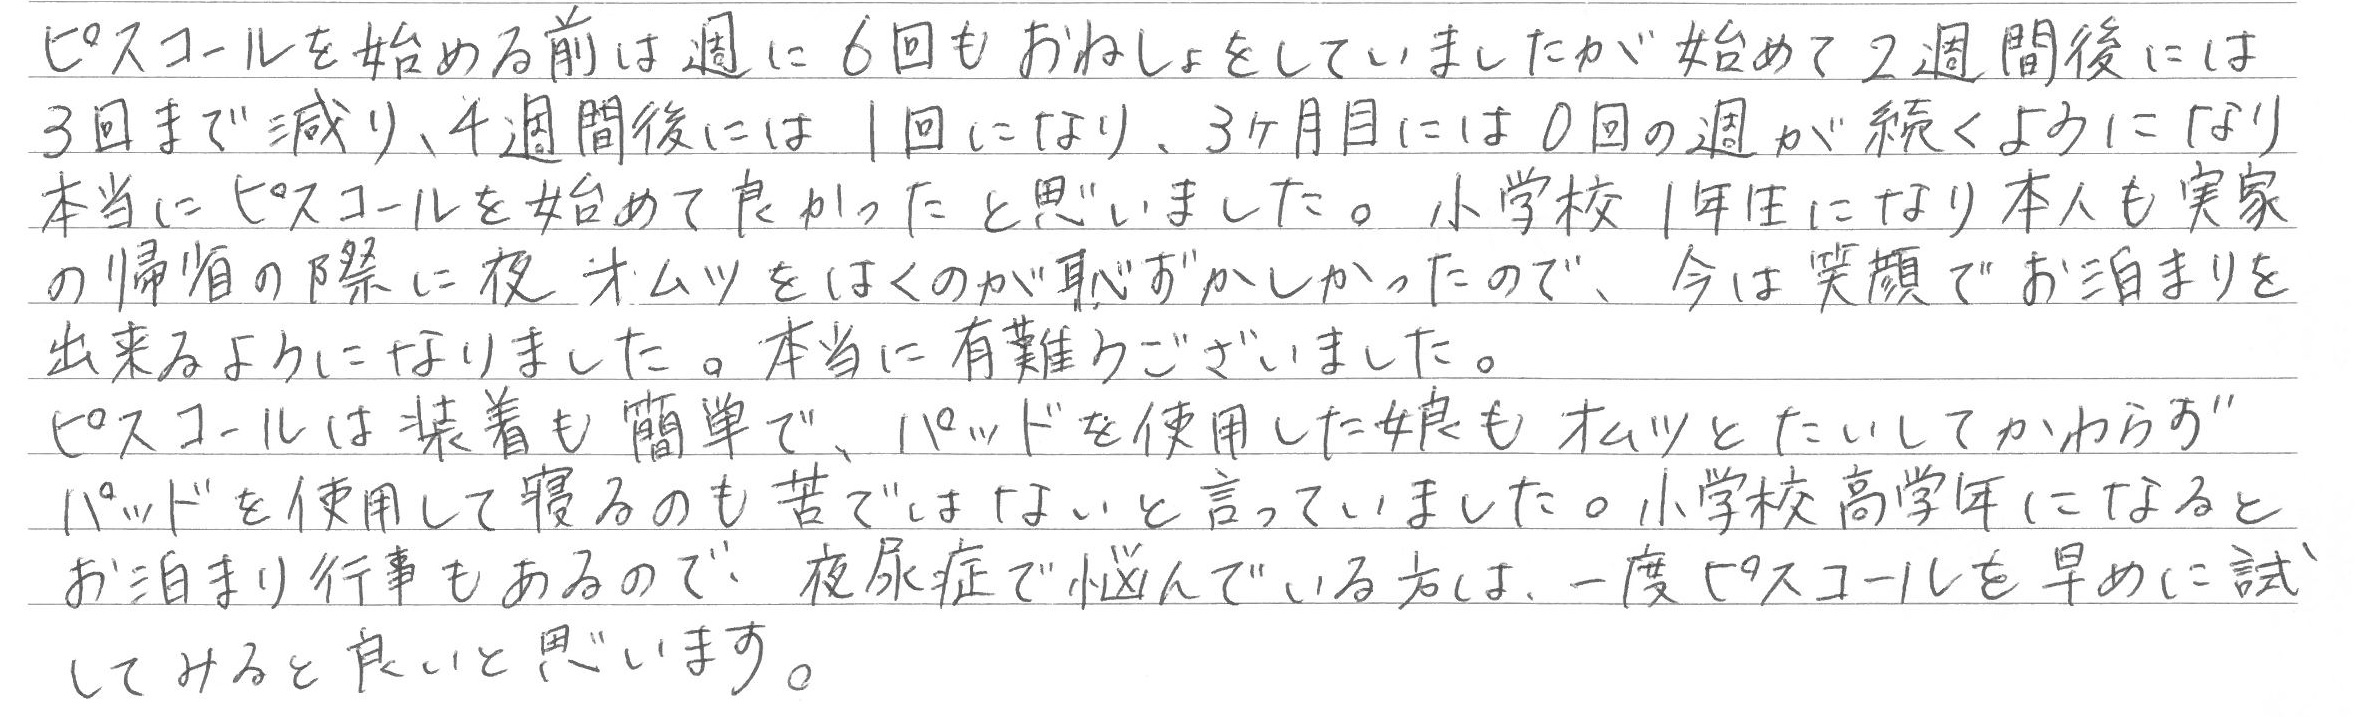 ピスコールを始める前は週に6回もおねしょをしていましたが始めて2週間後には
3回まで減り、4週間後には1回になり、3ヶ月目には0回の週が続くようになり
本当にピスコールを始めて良かったと思いました。小学校1年生になり本人も実家
の帰省の際に夜オムツをはくのが恥ずかしかったので、今は笑顔でお泊まりを
出来るようになりました。本当に有難うございました。
ピスコールは装着も簡単で、パッドを使用した娘もオムツとたいしてかわらず
パッドを使用して寝るのも苦ではないと言っていました。小学校高学年になると
お泊まり行事もあるので、夜尿症で悩んでいる方は、一度ピスコールを早めに試
してみると良いと思います。